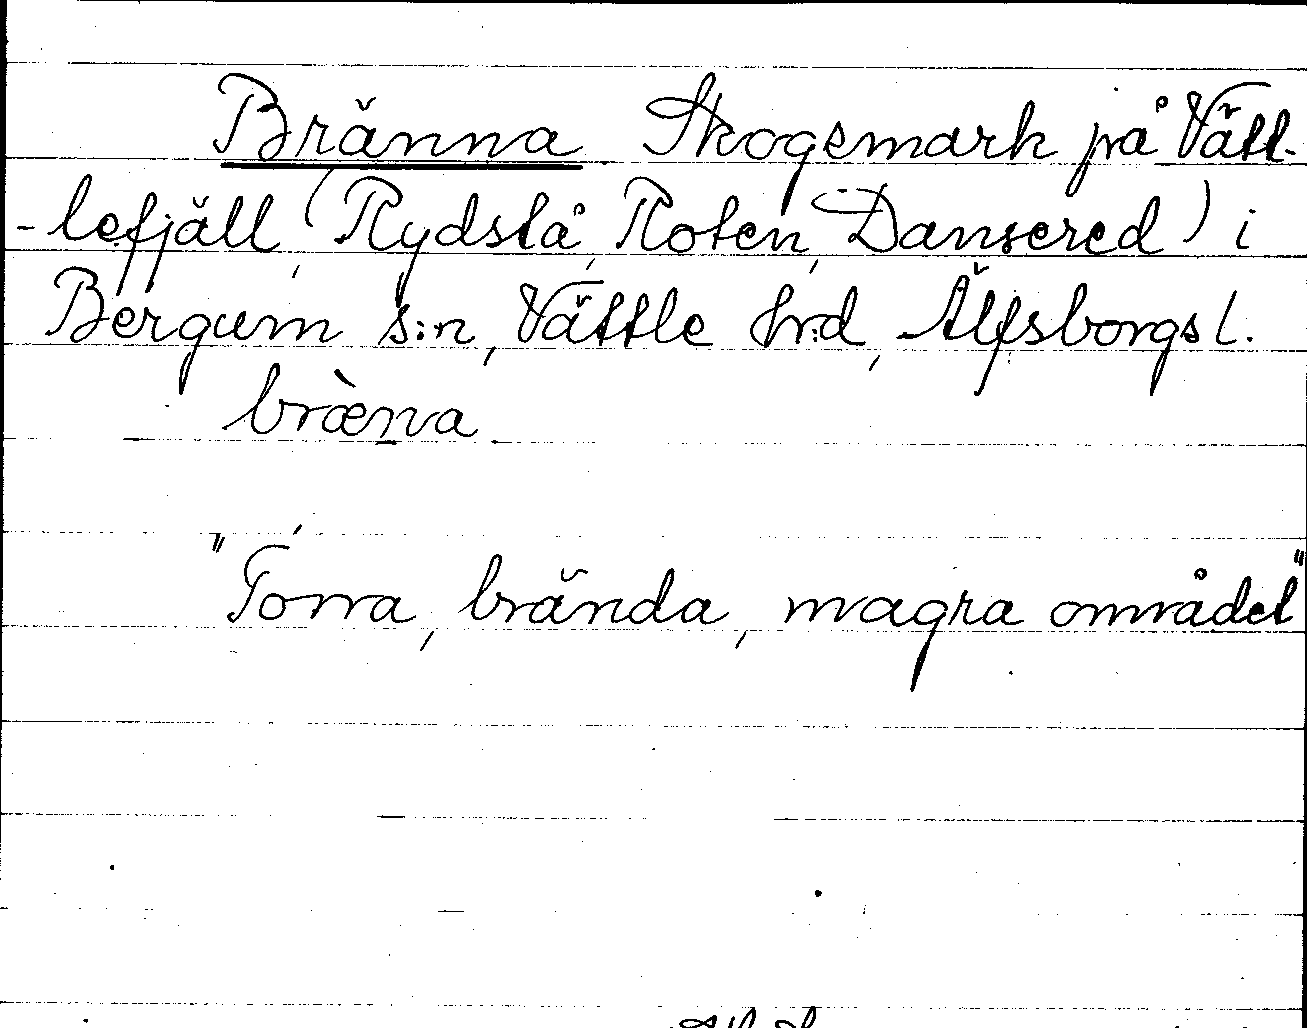 Bränna Skogsmark på Vätt-
-lefjäll, (Rydstå, Roten, Dansered) i
Bergum s:n, Vättle hrd, Älfsborgs l.
bræ̀nna
"Torra, brända, magra området"